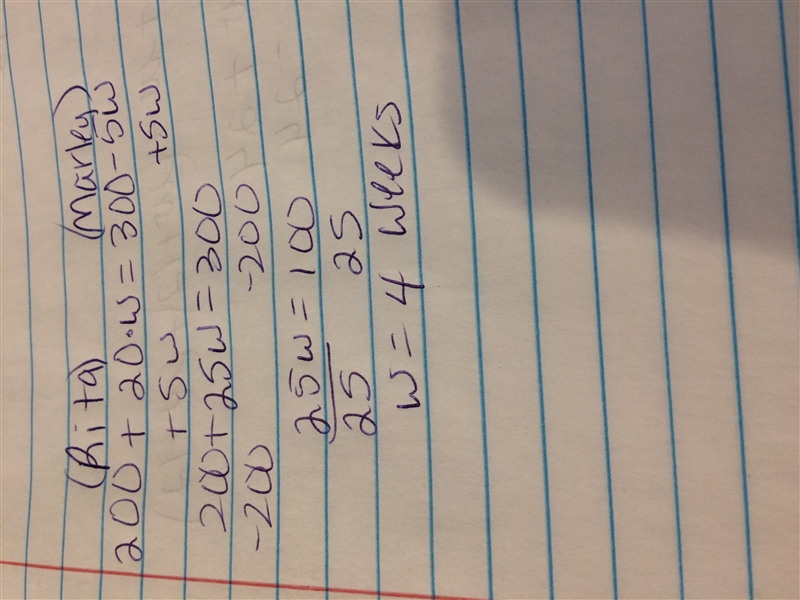 (Rita) (Marley)
200 + 20•w = 300 - 5w
+5w +5w
200 + 25w = 300
-200 -200
25w = 100
25 25
w = 4 weeks